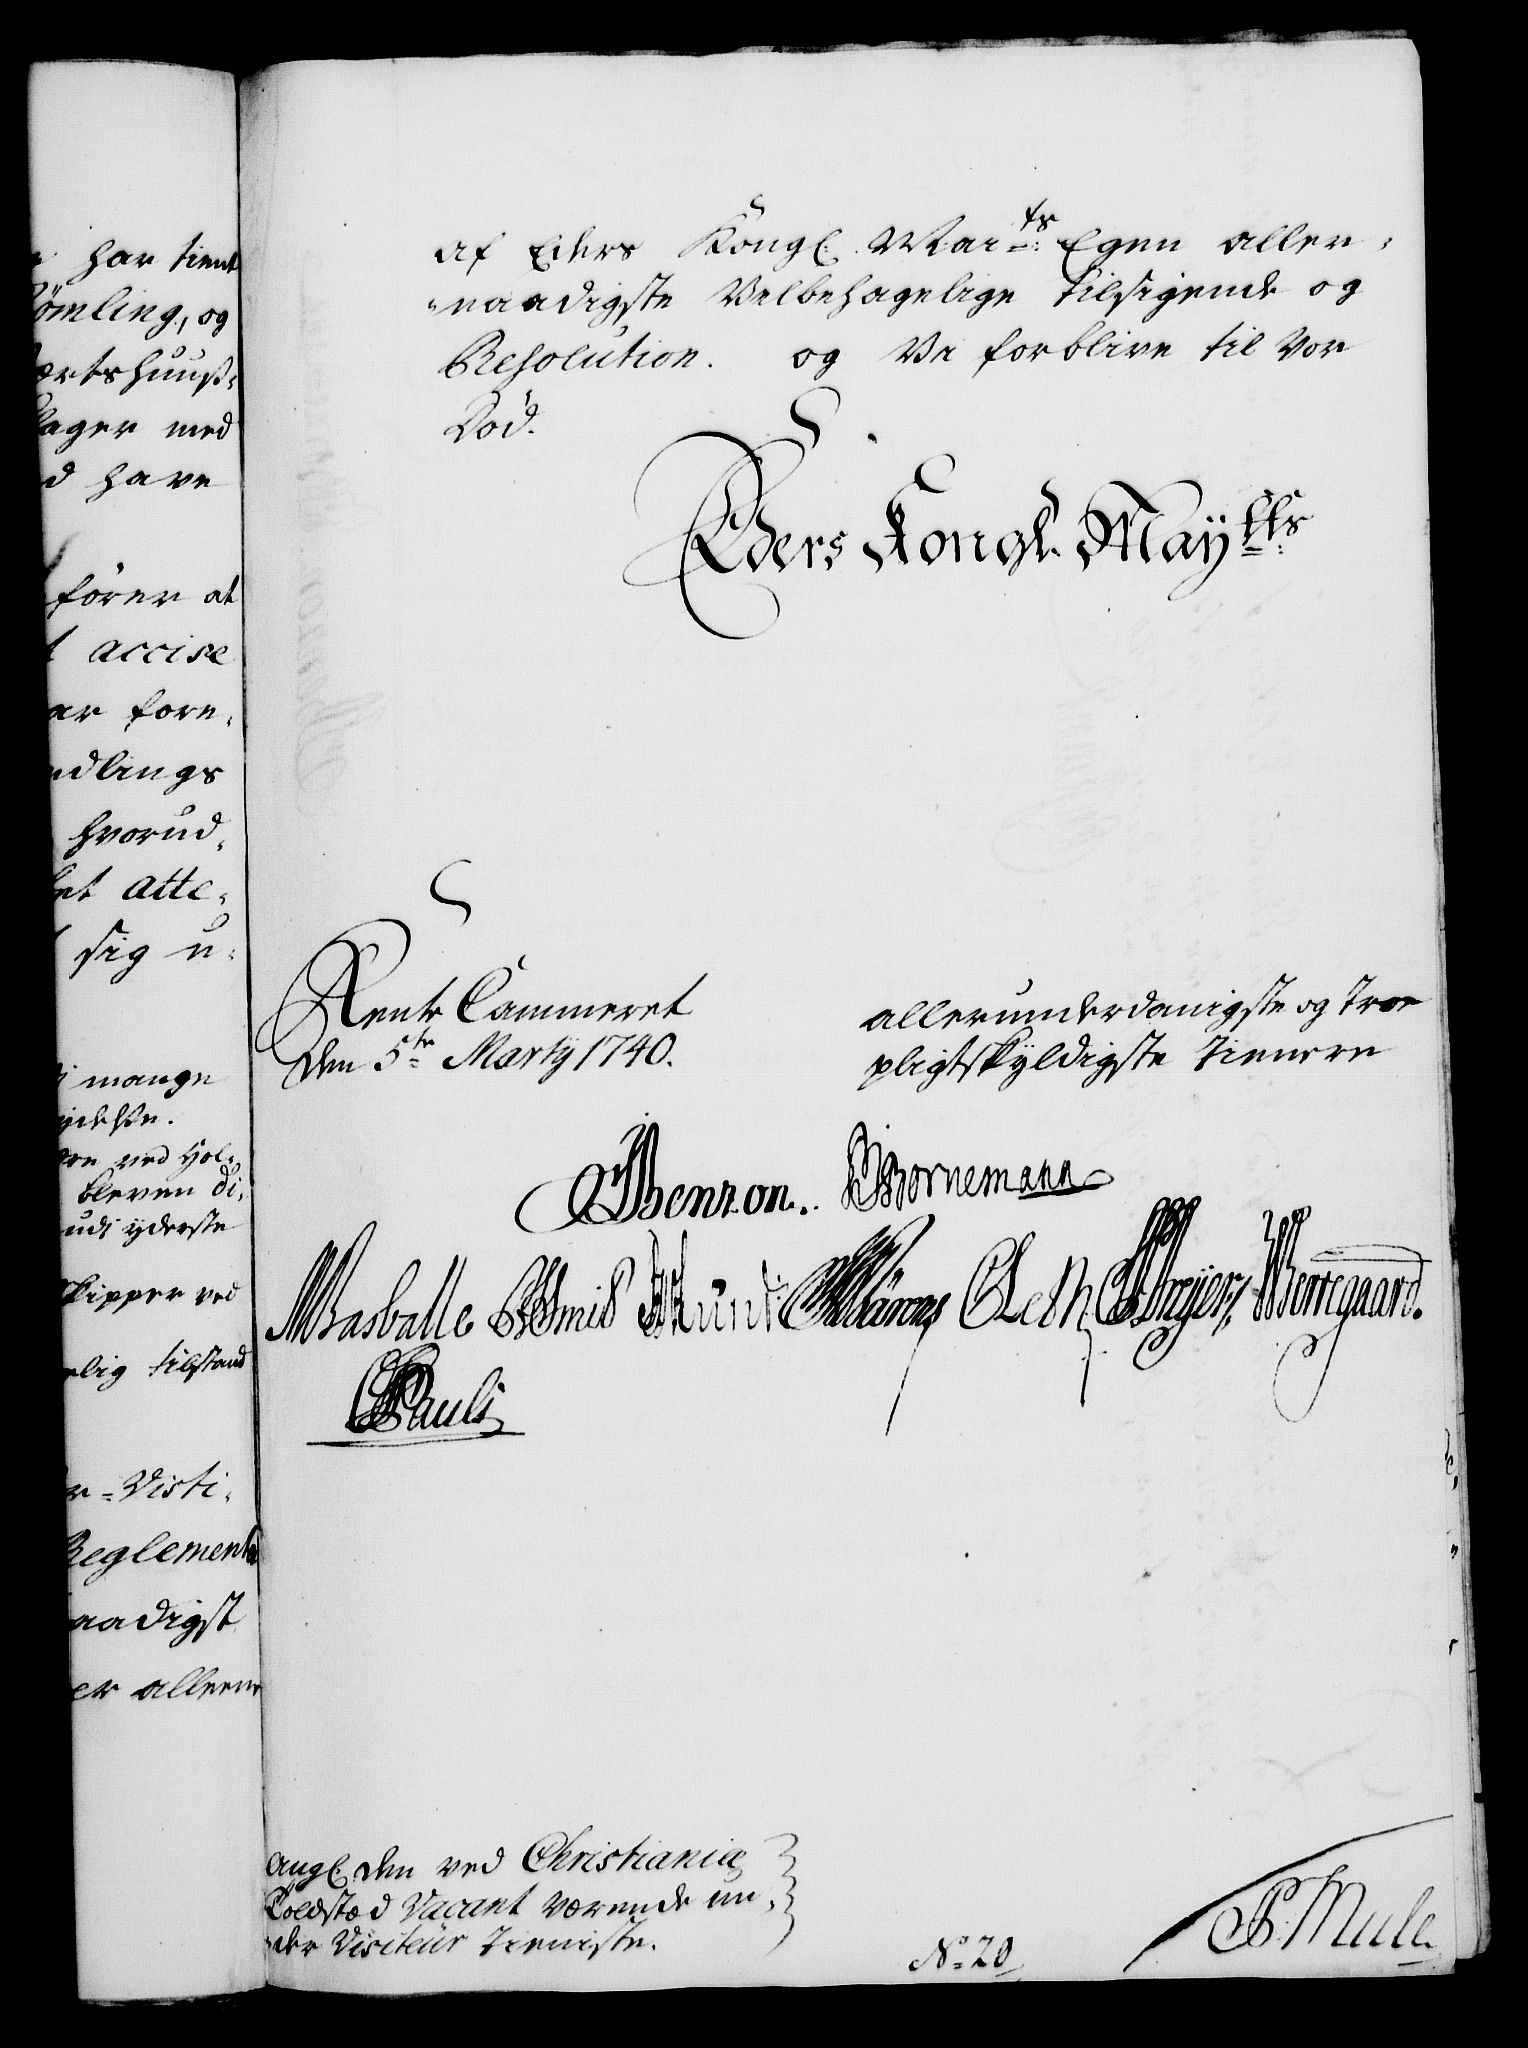 har tient
ömling, og
ertshuuß-
lager med
d have
fören at
accise
ar fore-
ndlings
hvorud-
et atte-
sig u-
mange
ydelse.
ved Hol-
bleven di-
udi yderste
Skipper ved
elig tilstand
r-Visti-
Reglement
aadigst
er alleene
af Eders Kongl. Mai:ts Egen aller-
naadigste Velbehagelige tilsigende og
Resolution. og Vi forblive til Vor
Död.
Eders Kongl. Maÿtts
Rente Cammeret
den 5te Martÿ 1740.
allerunderdanigste og Troe
pligtskyldigste Tienere
Benzon. Bornemann
Basballe Smid Mund Bärens Leth Meyer Werregaard.
Pauli
Angl. den ved Christianiæ
Toldsted Vacant værende un-
der Visiteür Tieniste.
No 20
P: Mule